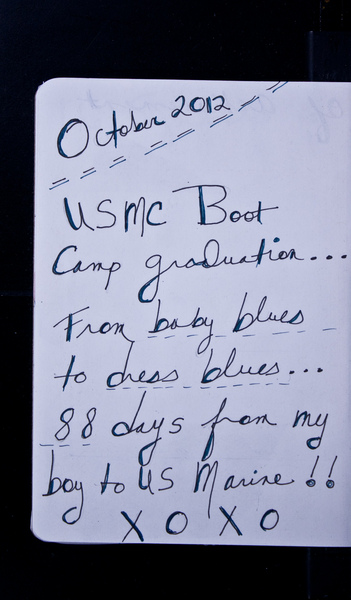 October 2012
USMC Boot
Camp graduation...
From baby blues
to dress blues...
88 days from my
boy to US Marine!!
XOXO